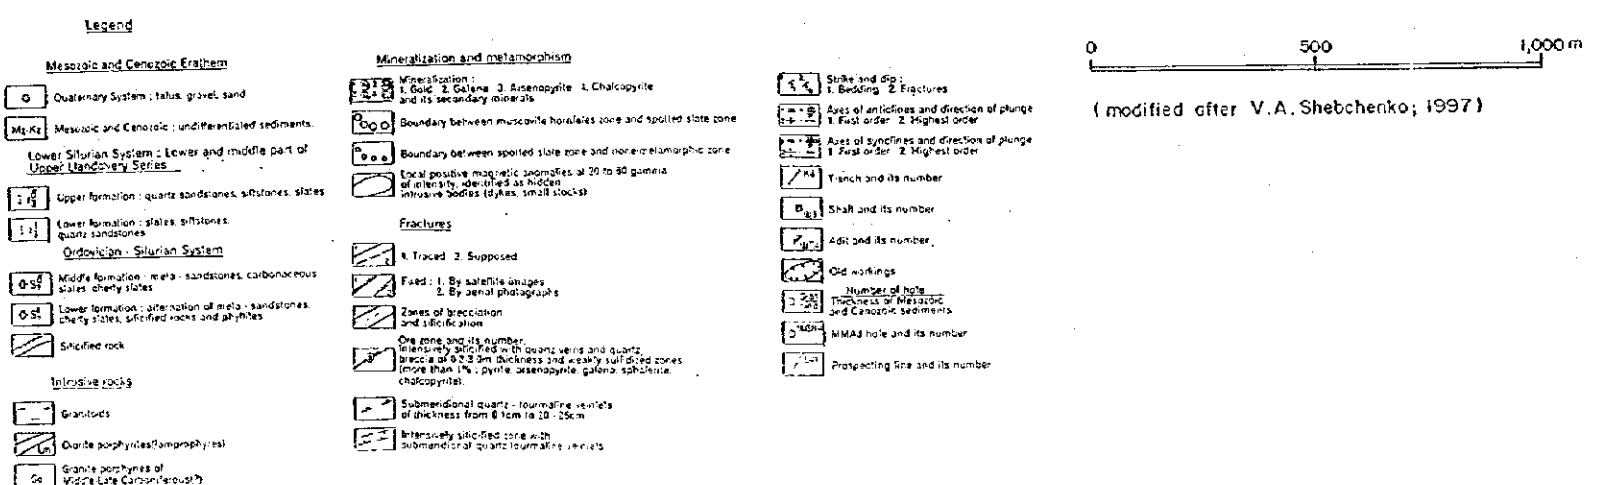 Legend
Mesozoic and Cenozoic Erathem
Quaternary System ; talus, gravel, sand
Mz-Kz Mesozoic and Cenozoic ; undifferentiated sediments.
Lower Silurian System ; Lower and middle part of
Upper Llandovery Series
Upper formation ; quartz sandstones, siltstones, slates
Lower formation ; slates, siltstones,
quartz sandstones
Ordovician - Silurian System
Middle formation : meta - sandstones, carbonaceous
slates, cherty slates
Lower formation ; alternation of meta - sandstones,
cherty slates, silicified rocks and phyllites
Silicified rock
Intrusive rocks
Granitoids
Diorite porphyrites(lamprophyres)
Granite porphyries of
Middle-Late Carboniferous(?)
Mineralization and metamorphism
Mineralization :
1. Gold 2. Galena 3. Arsenopyrite 4. Chalcopyrite
and its secondary minerals
Boundary between muscovite hornfeles zone and spotted slate zone
Boundary between spotted slate zone and nonmetamorphic zone
Local positive magnetic anomalies at 20 to 60 gamma
of intensity, identified as hidden
intrusive bodies (dykes, small stocks)
Fractures
1. Traced 2. Supposed
Fixed : 1. By satellite images
2. By aerial photographs
Zones of brecciation
and silicification
Ore zone and its number.
Intensively silicified with quartz veins and quartz
breccia of thickness and weakly sulfidized zones
(more than 1% ; pyrite, arsenopyrite, galena, sphalerite,
chalcopyrite).
Submeridional quartz - tourmaline veinlets
of thickness from 0.1cm to 20 - 25cm
Intensively silicified zone with
submeridional quartz tourmaline veinlets
Strike and dip :
1. Bedding 2. Fractures
Axes of anticlines and direction of plunge
1. First order 2. Highest order
Axes of synclines and direction of plunge
1. First order 2. Highest order
Trench and its number
Shaft and its number
Adit and its number
Old workings
Number of hole
Thickness of Mesozoic
and Cenozoic sediments
MMAJ hole and its number
Prospecting line and its number
0 500 1,000 m
( modified after V.A. Shebchenko; 1997)